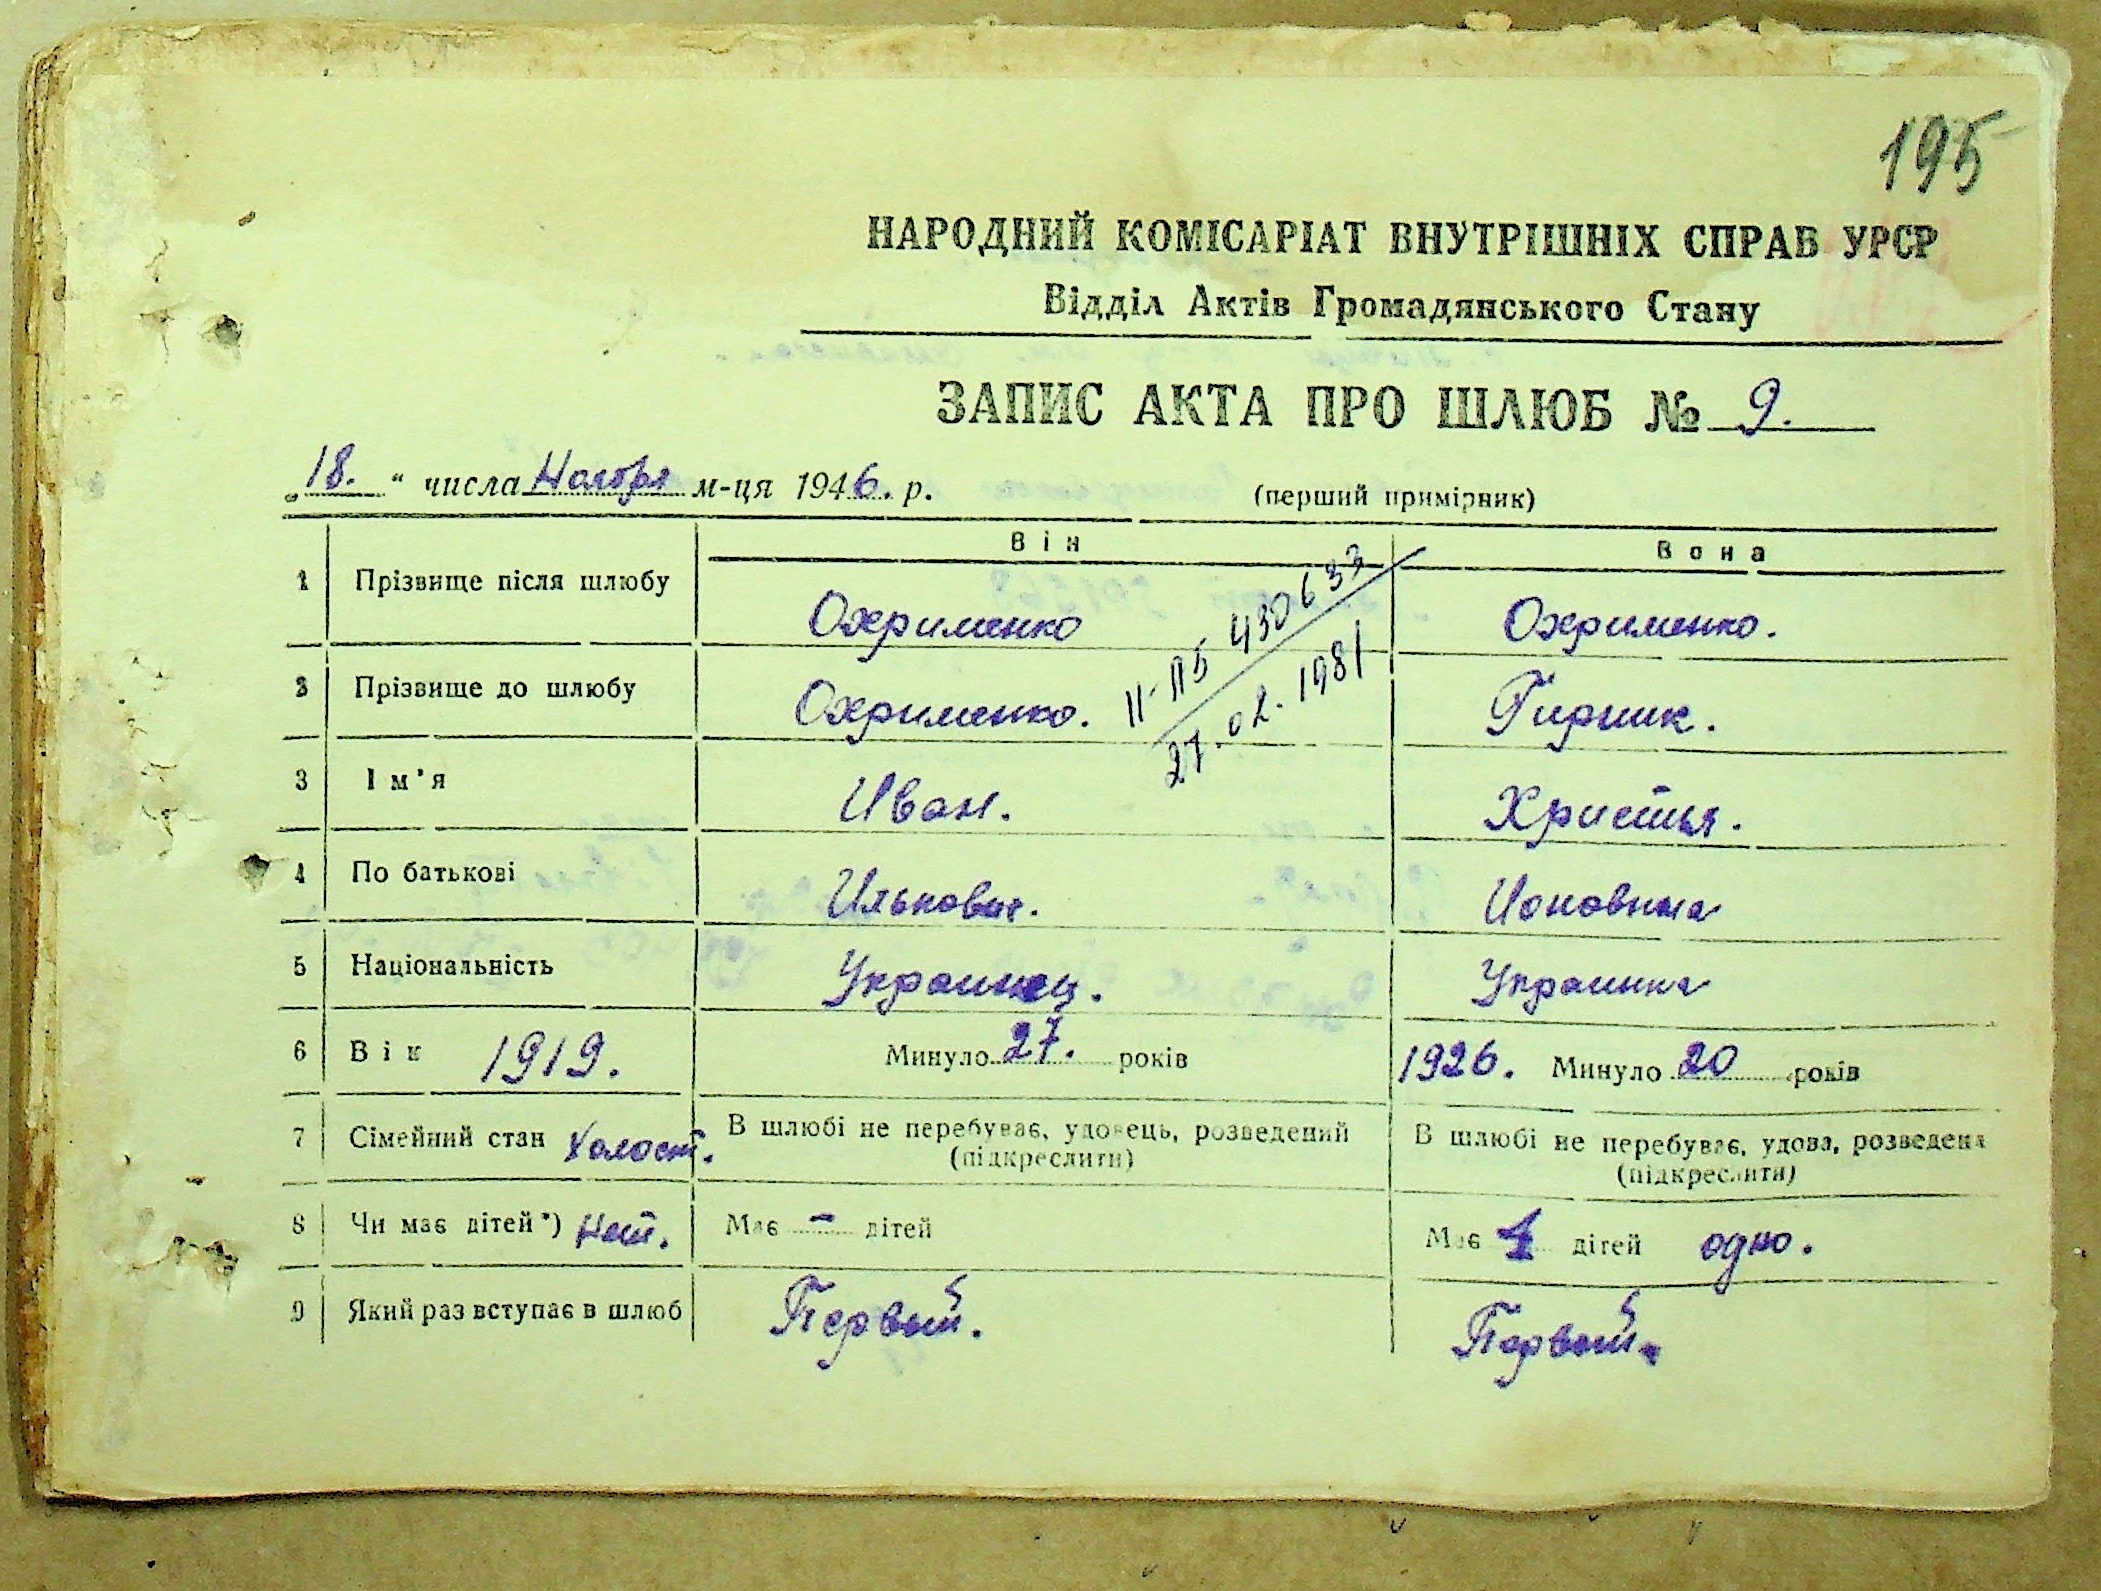 195
НАРОДНИЙ КОМІСАРІАТ ВНУТРІШНІХ СПРАВ УРСР
Відділ Актів Громадянського Стану
ЗАПИС АКТА ПРО ШЛЮБ № 9.
„18.“ числа Ноября м-ця 1946. р.
(перший примірник)
Він Вона
1 Прізвище після шлюбу Охрименко Охрименко.
2 Прізвище до шлюбу Охрименко. Гирник.
II-АП5 430633
27.02.1981
3 Ім'я Иван. Христья.
4 По батькові Илькович. Ионовина
5 Національність Украинец. Украинка
6 Вік 1919. Минуло 27. років 1926. Минуло 20 років
7 Сімейний стан Холост. В шлюбі не перебуває, удовець, розведений В шлюбі не перебуває, удова, розведена
(підкреслити) (підкреслити)
8 Чи має дітей*) Нет. Має - дітей Має 1 дітей одно.
9 Який раз вступає в шлюб Первый. Первый.